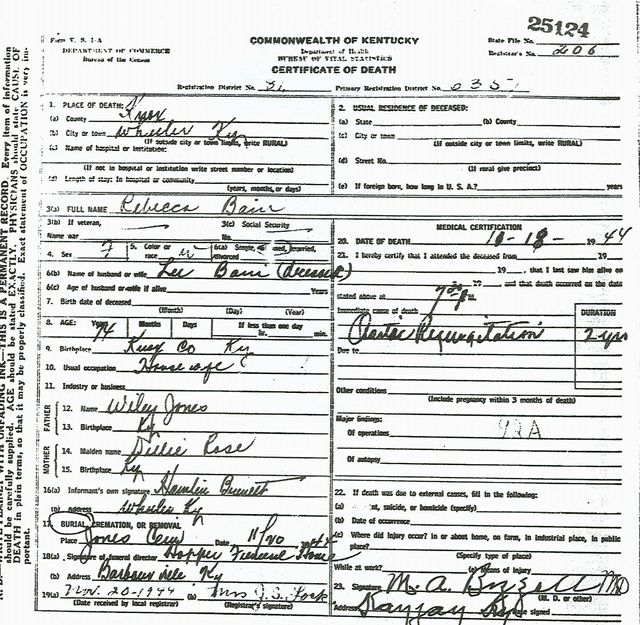 25124
Form V. S. 1-A
COMMONWEALTH OF KENTUCKY
State File No.
DEPARTMENT OF COMMERCE
Department of Health
Registrar's No. 206
Bureau of the Census
BUREAU OF VITAL STATISTICS
CERTIFICATE OF DEATH
Registration District No. Primary Registration District No.
1. PLACE OF DEATH:
(a) County Knox
(b) City or town Wheeler Ky
(If outside city or town limits, write RURAL)
(c) Name of hospital or institution:
(If not in hospital or institution write street number or location)
(d) Length of stay: In hospital or community
(years, months, or days)
2. USUAL RESIDENCE OF DECEASED:
(a) State (b) County
(c) City or town
(If outside city or town limits, write RURAL)
(d) Street No.
(If rural give precinct)
(e) If foreign born, how long in U. S. A.? years
3(a) FULL NAME Rebecca Bain
3(b) If veteran, 3(c) Social Security
Name war No.
4. Sex F 5. Color or race W 6(a) Single, married, divorced
6(b) Name of husband or wife Lee Bain
6(c) Age of husband or wife if alive Years
7. Birth date of deceased
(Month) (Day) (Year)
8. AGE: Years 74 Months Days If less than one day
hr. min.
9. Birthplace Knox Co Ky
10. Usual occupation Housewife
11. Industry or business
FATHER
12. Name Wiley Jones
13. Birthplace Ky
MOTHER
14. Maiden name Rose
15. Birthplace Ky
16(a) Informant's own signature
(b) Address Wheeler Ky
17. BURIAL, CREMATION, OR REMOVAL
Place Jones Cem Date 11/20 1944
18(a) Signature of funeral director Hopper Funeral Home
(b) Address Barbourville Ky
19(a) Nov. 20-1944 (b) Mrs J. S.
(Date received by local registrar) (Registrar's signature)
MEDICAL CERTIFICATION
20. DATE OF DEATH 18- 1944
21. I hereby certify that I attended the deceased from 19
19 , that I last saw him alive on
19 , and that death occurred on the date
stated above at
Immediate cause of death
DURATION
Regurgitation 2 yrs
Due to
Other conditions
(Include pregnancy within 3 months of death)
Major findings:
Of operations 92A
Of autopsy
22. If death was due to external causes, fill in the following:
(a) suicide, or homicide (specify)
(b) Date of occurrence
(c) Where did injury occur? in or about home, on farm, in industrial place, in public
place?
(Specify type of place)
While at work? (e) Means of injury
23. Signature M. A. MD
(M. D. or other)
Address Kayjay Ky signed
PERMANENT RECORD. Every item of information
should be carefully supplied. AGE should be stated EXACTLY. PHYSICIANS should state CAUSE OF
DEATH in plain terms, so that it may be properly classified. Exact statement of OCCUPATION is very im-
portant.